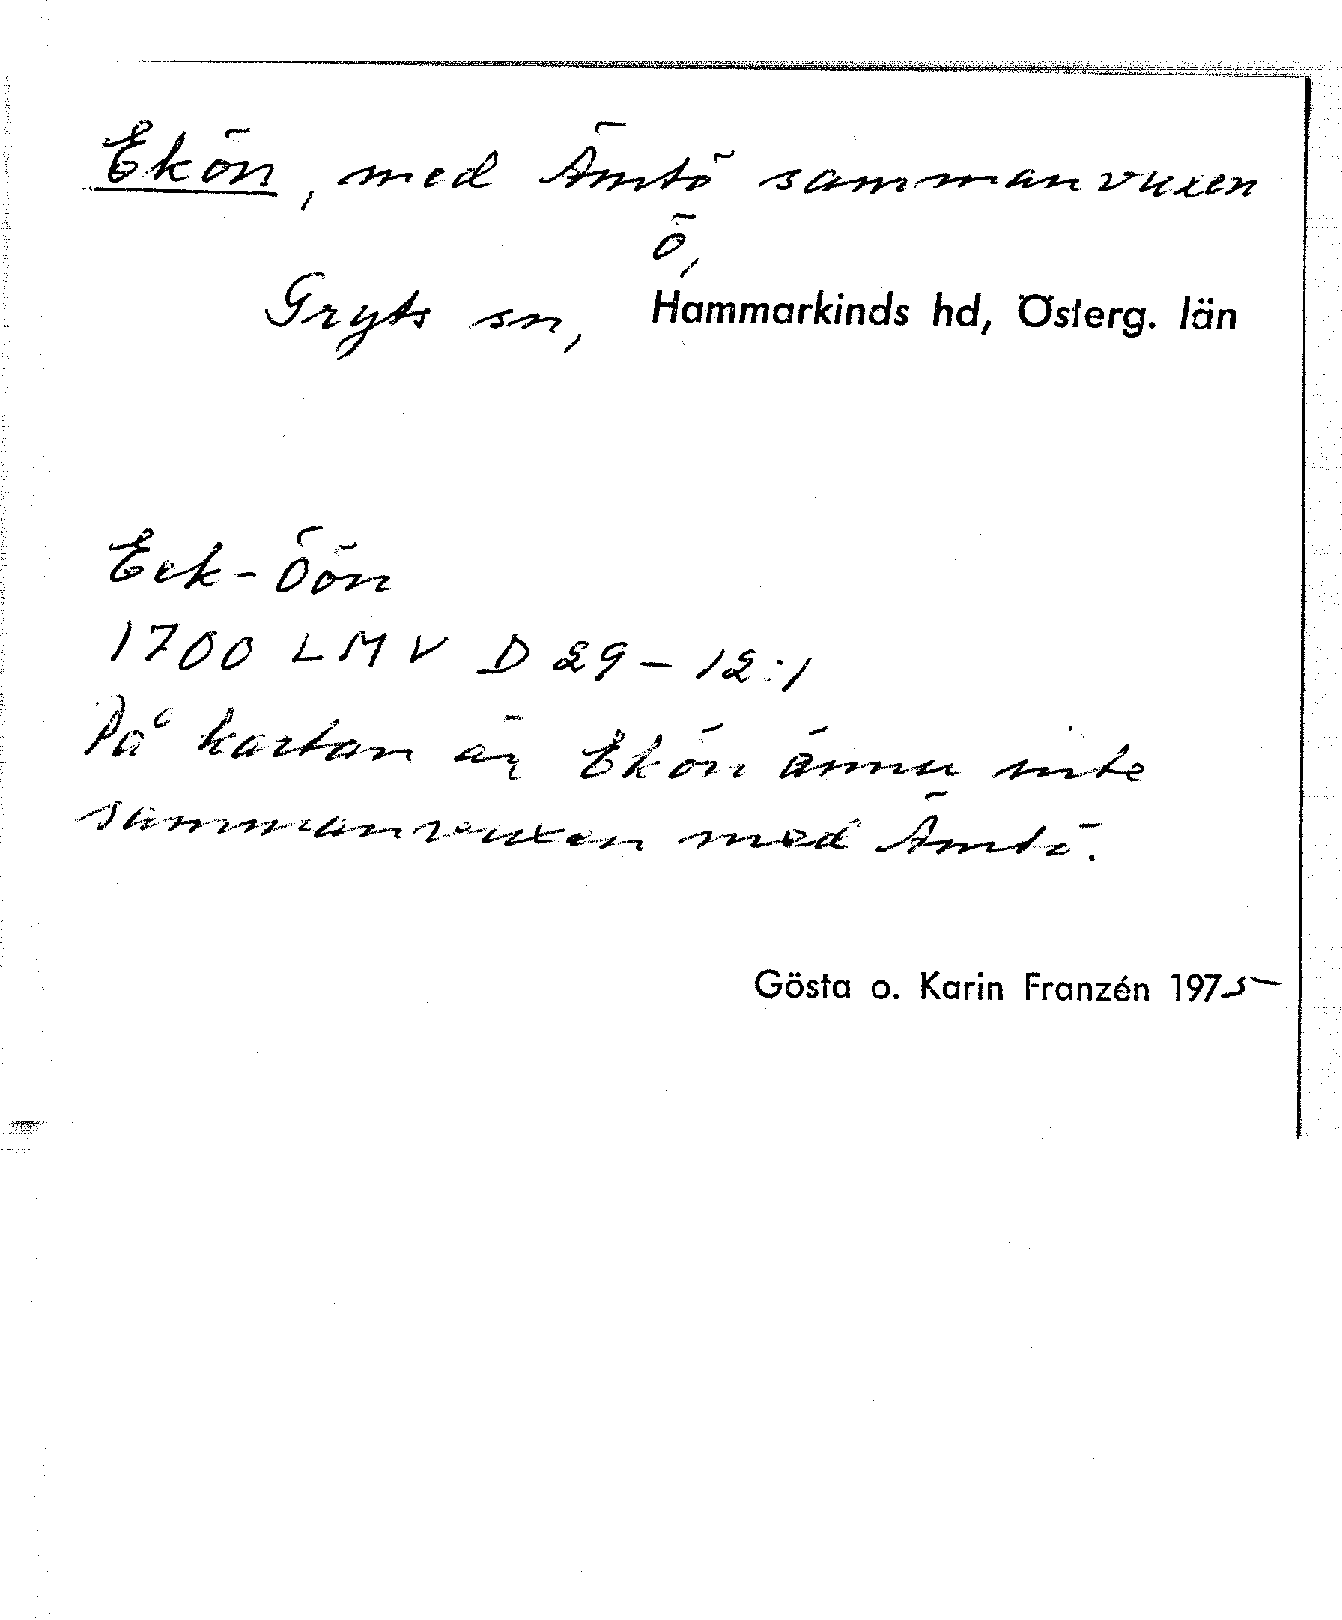 Ekön, med Ämtö sammanvuxen
ö,
Gryts sn, Hammarkinds hd, Österg. län
Eek-Öön
1700 LMV D 29-12:1
På kartan är Ekön ännu inte
sammanvuxen med Ämtö.
Gösta o. Karin Franzén 1975